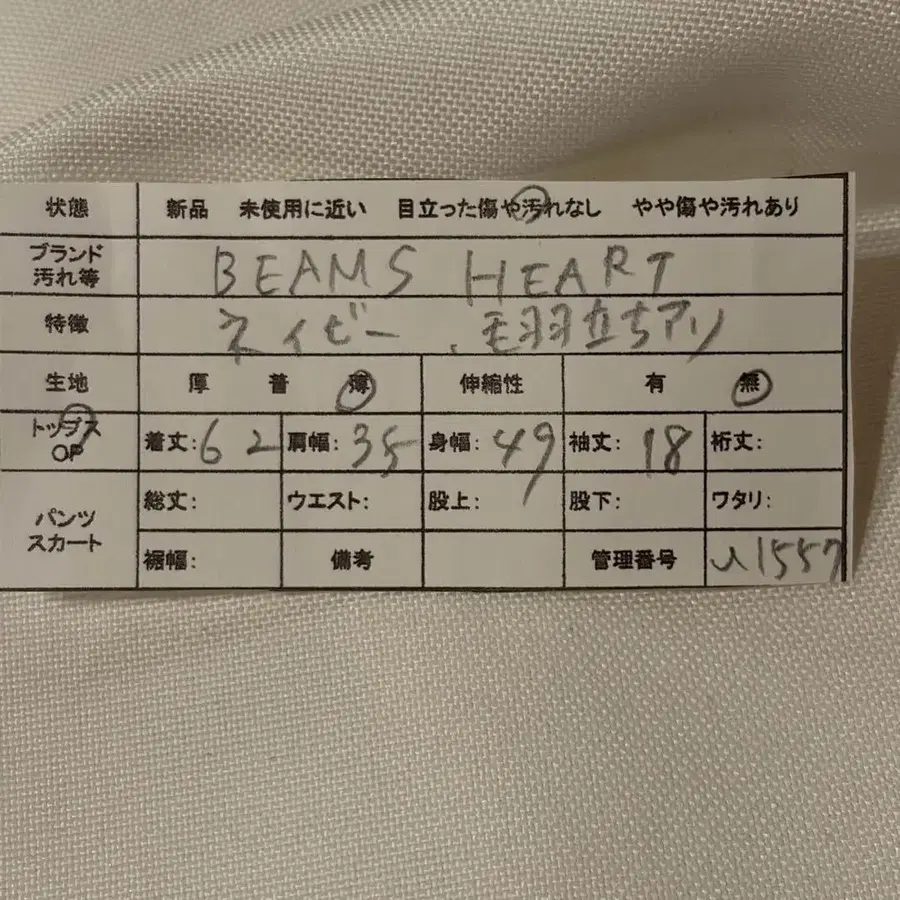 状態 新品 未使用に近い 目立った傷や汚れなし やや傷や汚れあり
ブランド
汚れ等 BEAMS HEART
特徴 ネイビー、毛羽立ちアリ
生地 厚 普 薄 伸縮性 有 無
トップス
OP 着丈:62 肩幅:35 身幅:49 袖丈:18 裄丈:
パンツ
スカート 総丈: ウエスト: 股上: 股下: ワタリ:
裾幅: 備考 管理番号 い1557